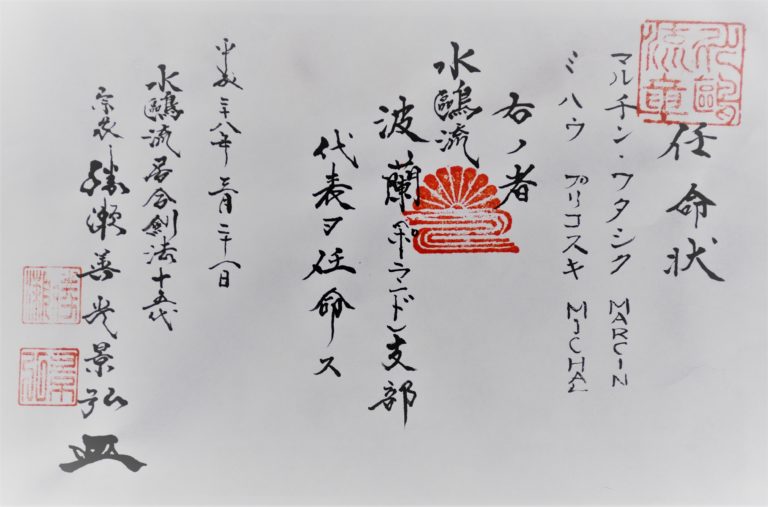 任命状
マルチン・ワタシク MARCIN
ミハウ プリコスキ MICHAŁ
右ノ者
水鷗流
波蘭(ポーランド)支部
代表ヲ任命ス
平成二十八年 月二十 日
水鷗流居合剣法十五代
宗家 勝瀬善光景弘